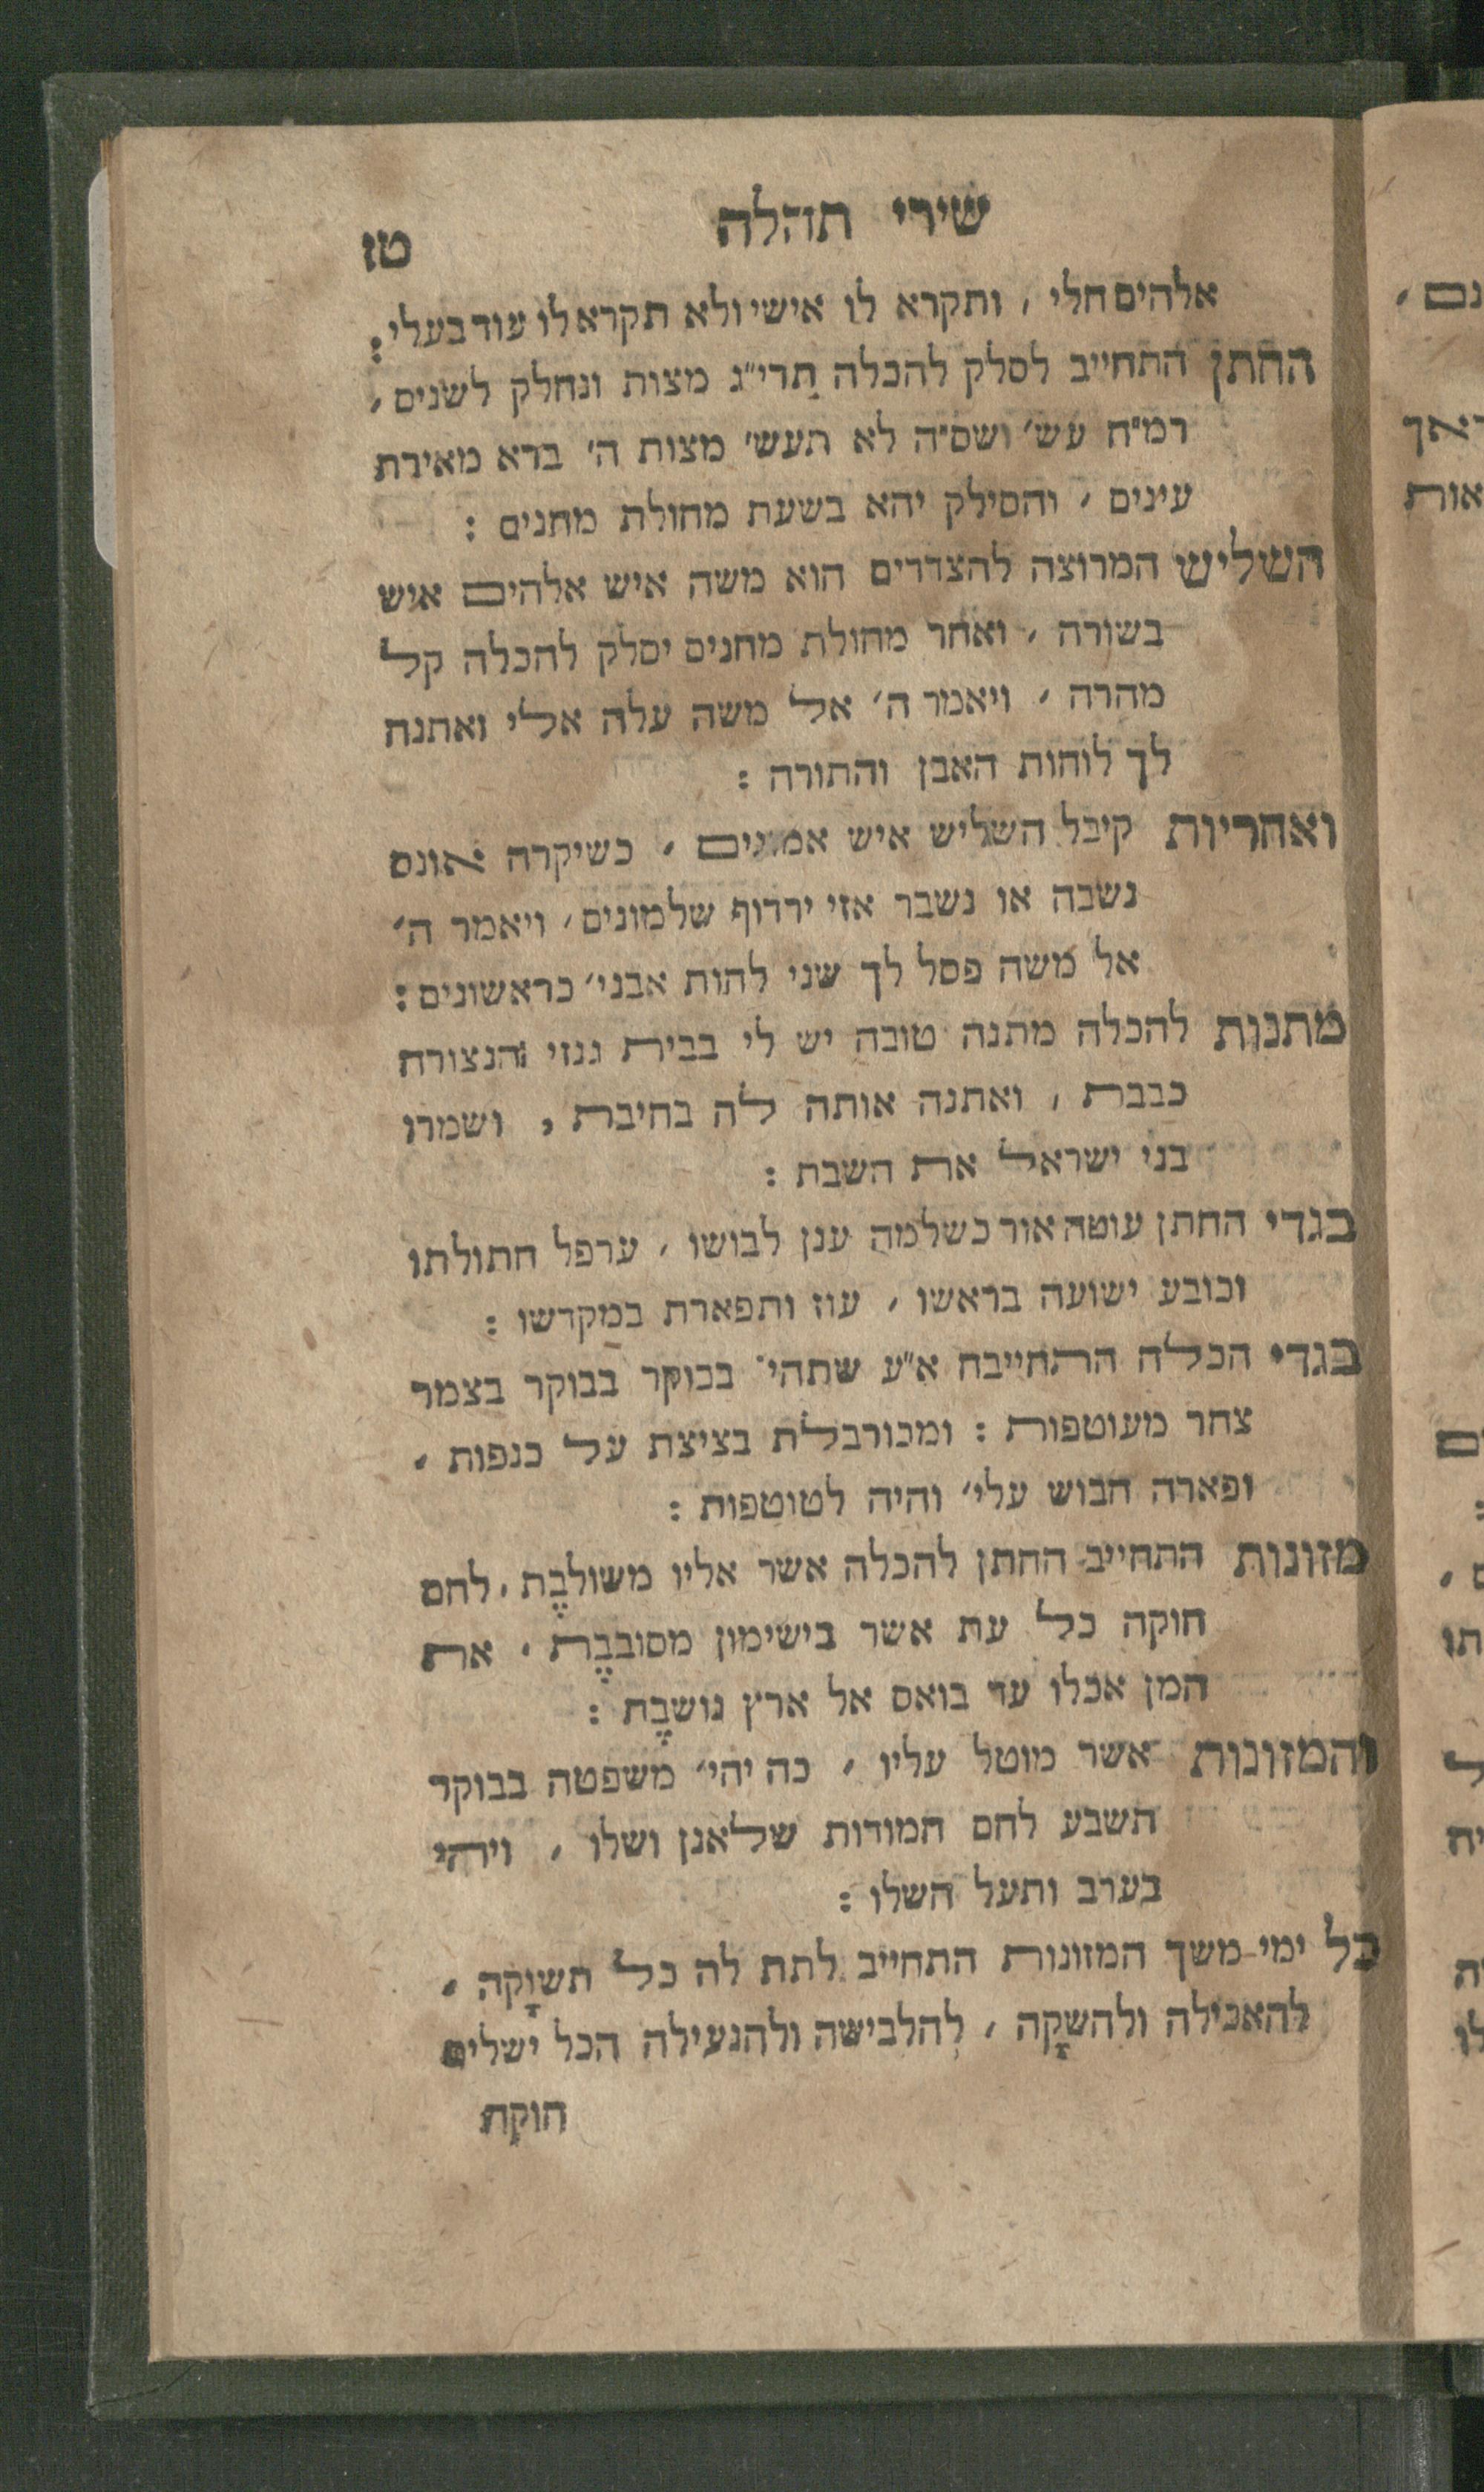 שירי תהלה
טז
אלהים חלי, ותקרא לו אישי ולא תקרא לו עוד בעלי:
החתן התחייב לסלק להכלה תרי"ג מצות ונחלק לשנים,
רמ"ח עש' ושס"ה לא תעש' מצות ה' ברא מאירת
עינים, והסילק יהא בשעת מחולת מחנים:
השליש המרוצה להצדדים הוא משה איש אלהים איש
בשורה, ואחר מחולת מחנים יסלק להכלה קל
מהרה, ויאמר ה' אל משה עלה אלי ואתנה
לך לוחות האבן והתורה:
ואחריות קיבל השליש איש אמונים, כשיקרה אונס
נשבה או נשבר אזי ירדוף שלמונים, ויאמר ה'
אל משה פסל לך שני לחות אבני' כראשונים:
מתנות להכלה מתנה טובה יש לי בבית גנזי הנצורה
כבבת, ואתנה אותה לה בחיבת, ושמרו
בני ישראל את השבת:
בגדי החתן עוטה אור כשלמה ענן לבושו, ערפל חתולתו
וכובע ישועה בראשו, עוז ותפארת במקדשו:
בגדי הכלה התחייבה א"ע שתהי' בבוקר בבוקר בצמר
צחר מעוטפות: ומכורבלת בציצת על כנפות,
ופארה חבוש עלי' והיה לטוטפות:
מזונות התחייב החתן להכלה אשר אליו משולבֶת, לחם
חוקה כל עת אשר בישימון מסובבֶת, את
המן אכלו עד בואם אל ארץ נושבֶת:
והמזונות אשר מוטל עליו, כה יהי' משפטה בבוקר
תשבע לחם חמודות שלאנן ושלו, ויהי
בערב ותעל השלו:
כל ימי משך המזונות התחייב לתת לה כל תשוָקה,
להאכילה ולהשקָה, להלבישה ולהנעילה הכל ישלים
חוקת
נם,
ראך
אות
תו
ל
יה
לו